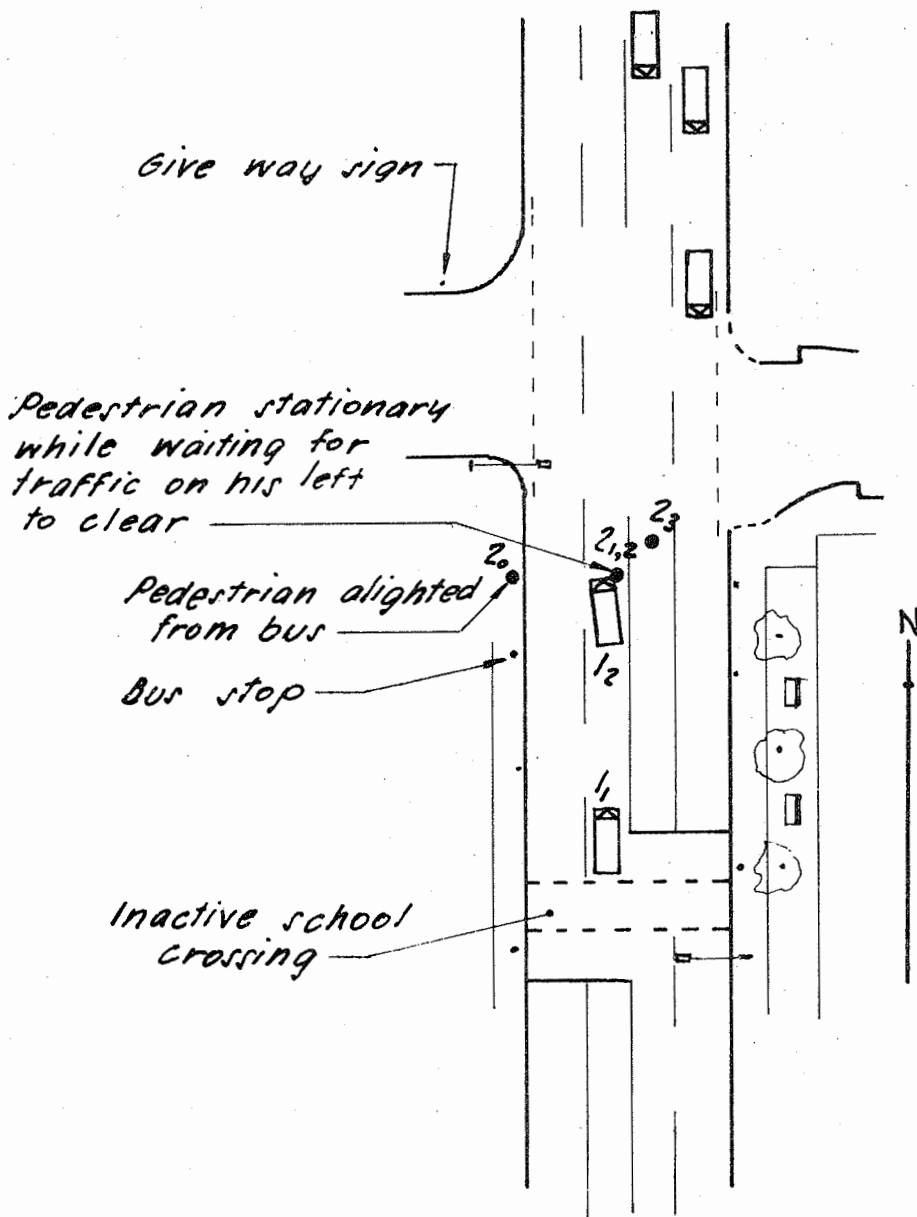 Give way sign
Pedestrian stationary
while waiting for
traffic on his left
to clear
2₃
2₁,₂
2₀
Pedestrian alighted
from bus
N
1₂
Bus stop
1₁
Inactive school
crossing